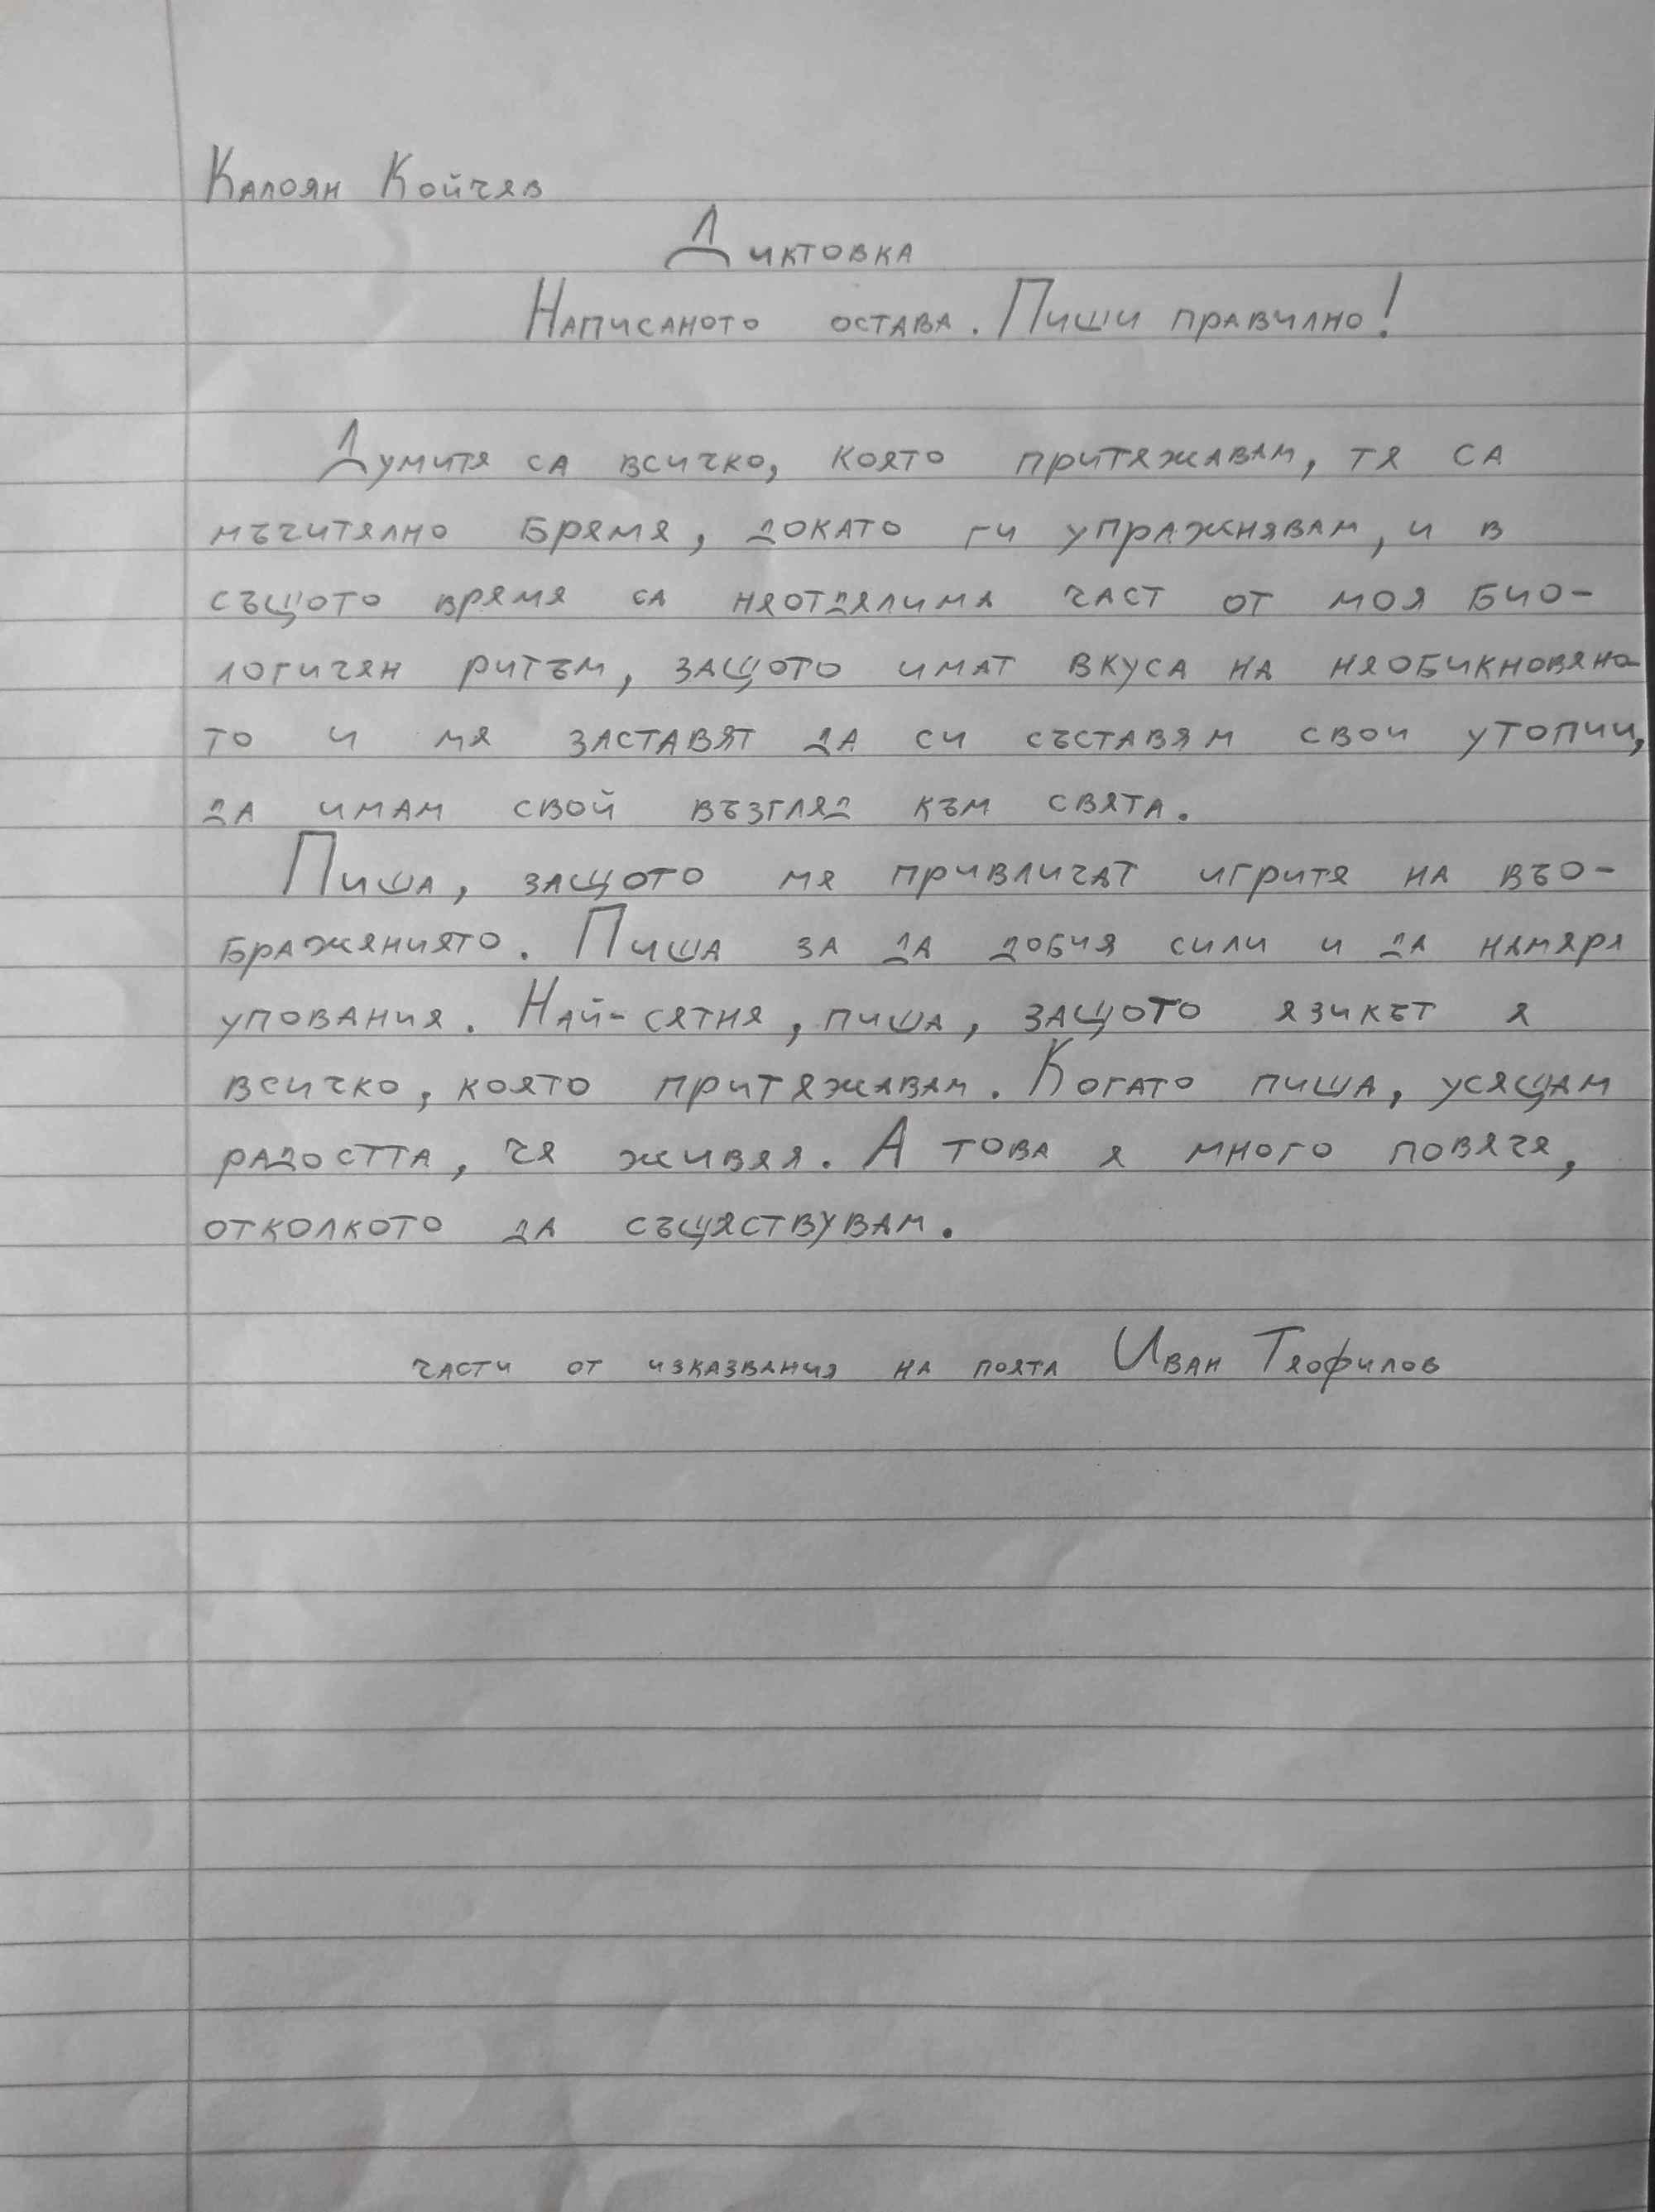 Калоян Койчев
Диктовка
Написаното остава. Пиши правилно!
Думите са всичко, което притежавам, те са
мъчително бреме, докато ги упражнявам, и в
същото време са неотделима част от моя био-
логичен ритъм, защото имат вкуса на необикновено-
то и ме заставят да си съставям свои утопии,
да имам свой възглед към света.
Пиша, защото ме привличат игрите на въо-
бражението. Пиша за да добия сили и да намеря
упования. Най-сетне, пиша, защото езикът е
всичко, което притежавам. Когато пиша, усещам
радостта, че живея. А това е много повече,
отколкото да съществувам.
части от изказвания на поета Иван Теофилов